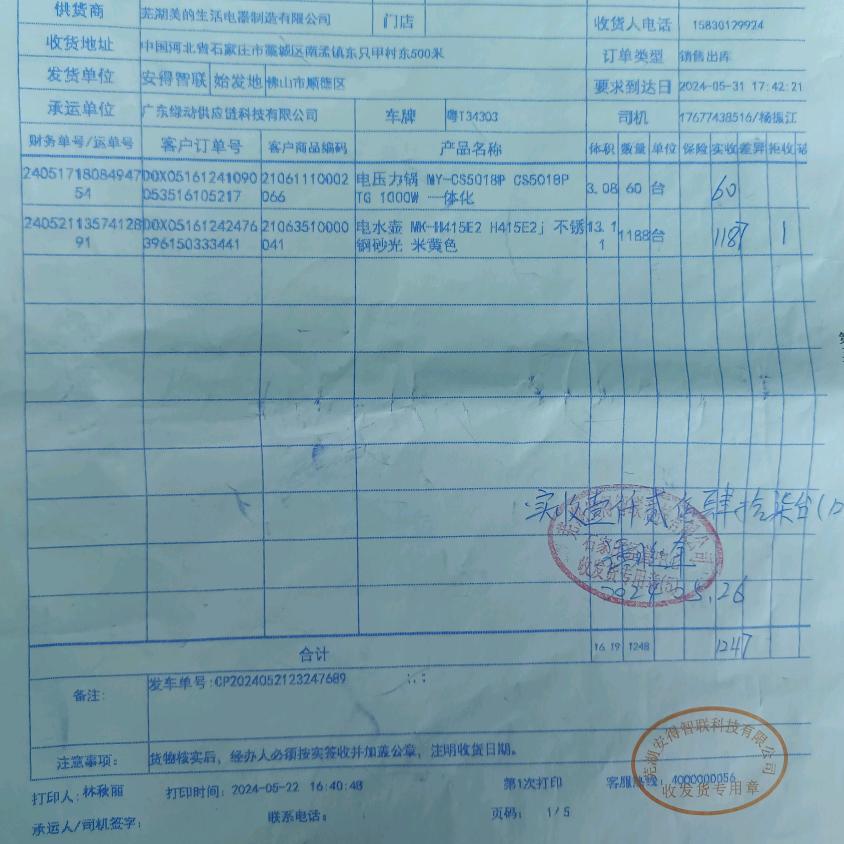 供货商 芜湖美的生活电器制造有限公司 门店 收货人电话 15830129924
收货地址 中国河北省石家庄市藁城区南孟镇东只甲村东500米 订单类型 销售出库
发货单位 安得智联 始发地 佛山市顺德区 要求到达日 2024-05-31 17:42:21
承运单位 广东绿动供应链科技有限公司 车牌 粤T34303 司机 17677438516/杨振江
财务单号/运单号 客户订单号 客户商品编码 产品名称 体积 数量 单位 保险 实收 差异 拒收
24051718084947 DOX05161241090 21061110002 电压力锅 MY-CS5018P CS5018P 3.08 60 台 60
54 053516105217 066 TG 1000W 一体化
24052113574128 DOX05161242476 21063510000 电水壶 MK-H415E2 H415E2j 不锈 13.1 1188 台 1187 1
91 396150333441 041 钢砂光 米黄色 1
实收壹仟贰佰肆拾柒台
收发货专用章
2024.05.26
合计 16.19 1248 1247
备注: 发车单号:CP2024052123247689
注意事项: 货物核实后，经办人必须按实签收并加盖公章，注明收货日期。
芜湖安得智联科技有限公司
收发货专用章
打印人:林秋丽 打印时间:2024-05-22 16:40:48 第1次打印 客服热线:4000000056
承运人/司机签字: 联系电话: 页码: 1/5